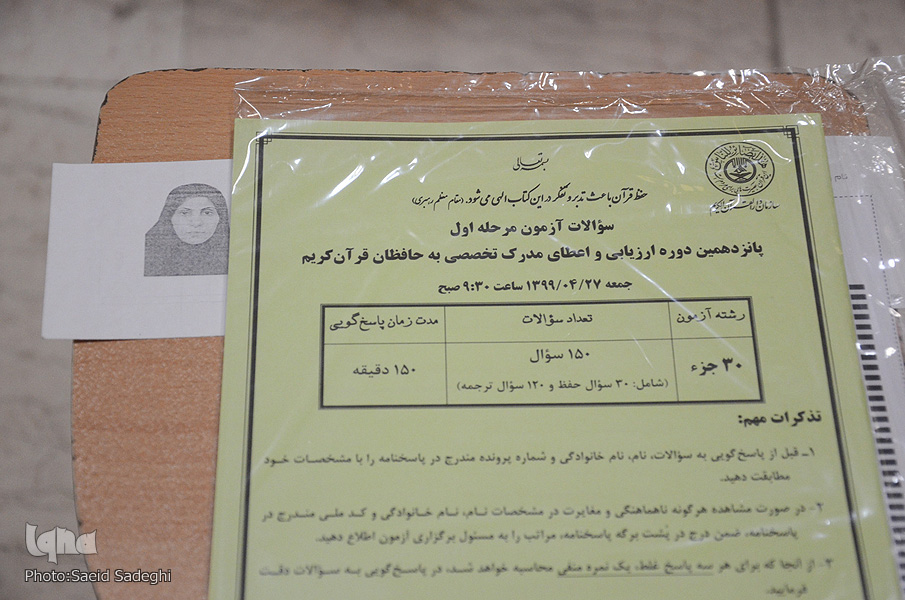 بسمه تعالی
حفظ قرآن باعث تدبر و تفکر در این کتاب الهی می‌شود. (مقام معظم رهبری)
سازمان دارالقرآن الکریم
سؤالات آزمون مرحله اول
پانزدهمین دوره ارزیابی و اعطای مدرک تخصصی به حافظان قرآن کریم
جمعه ۱۳۹۹/۰۴/۲۷ ساعت ۹:۳۰ صبح
رشته آزمون تعداد سؤالات مدت زمان پاسخ‌گویی
۳۰ جزء ۱۵۰ سؤال ۱۵۰ دقیقه
(شامل: ۳۰ سؤال حفظ و ۱۲۰ سؤال ترجمه)
تذکرات مهم:
۱- قبل از پاسخ‌گویی به سؤالات، نام، نام خانوادگی و شماره پرونده مندرج در پاسخنامه را با مشخصات خود
مطابقت دهید.
۲- در صورت مشاهده هرگونه ناهماهنگی و مغایرت در مشخصات نام، نام خانوادگی و کد ملی مندرج در
پاسخنامه، ضمن درج در پشت برگه پاسخنامه، مراتب را به مسئول برگزاری آزمون اطلاع دهید.
۳- از آنجا که برای هر سه پاسخ غلط، یک نمره منفی محاسبه خواهد شد، در پاسخ‌گویی به سؤالات دقت
فرمایید.
نام
iqna
Photo:Saeid Sadeghi